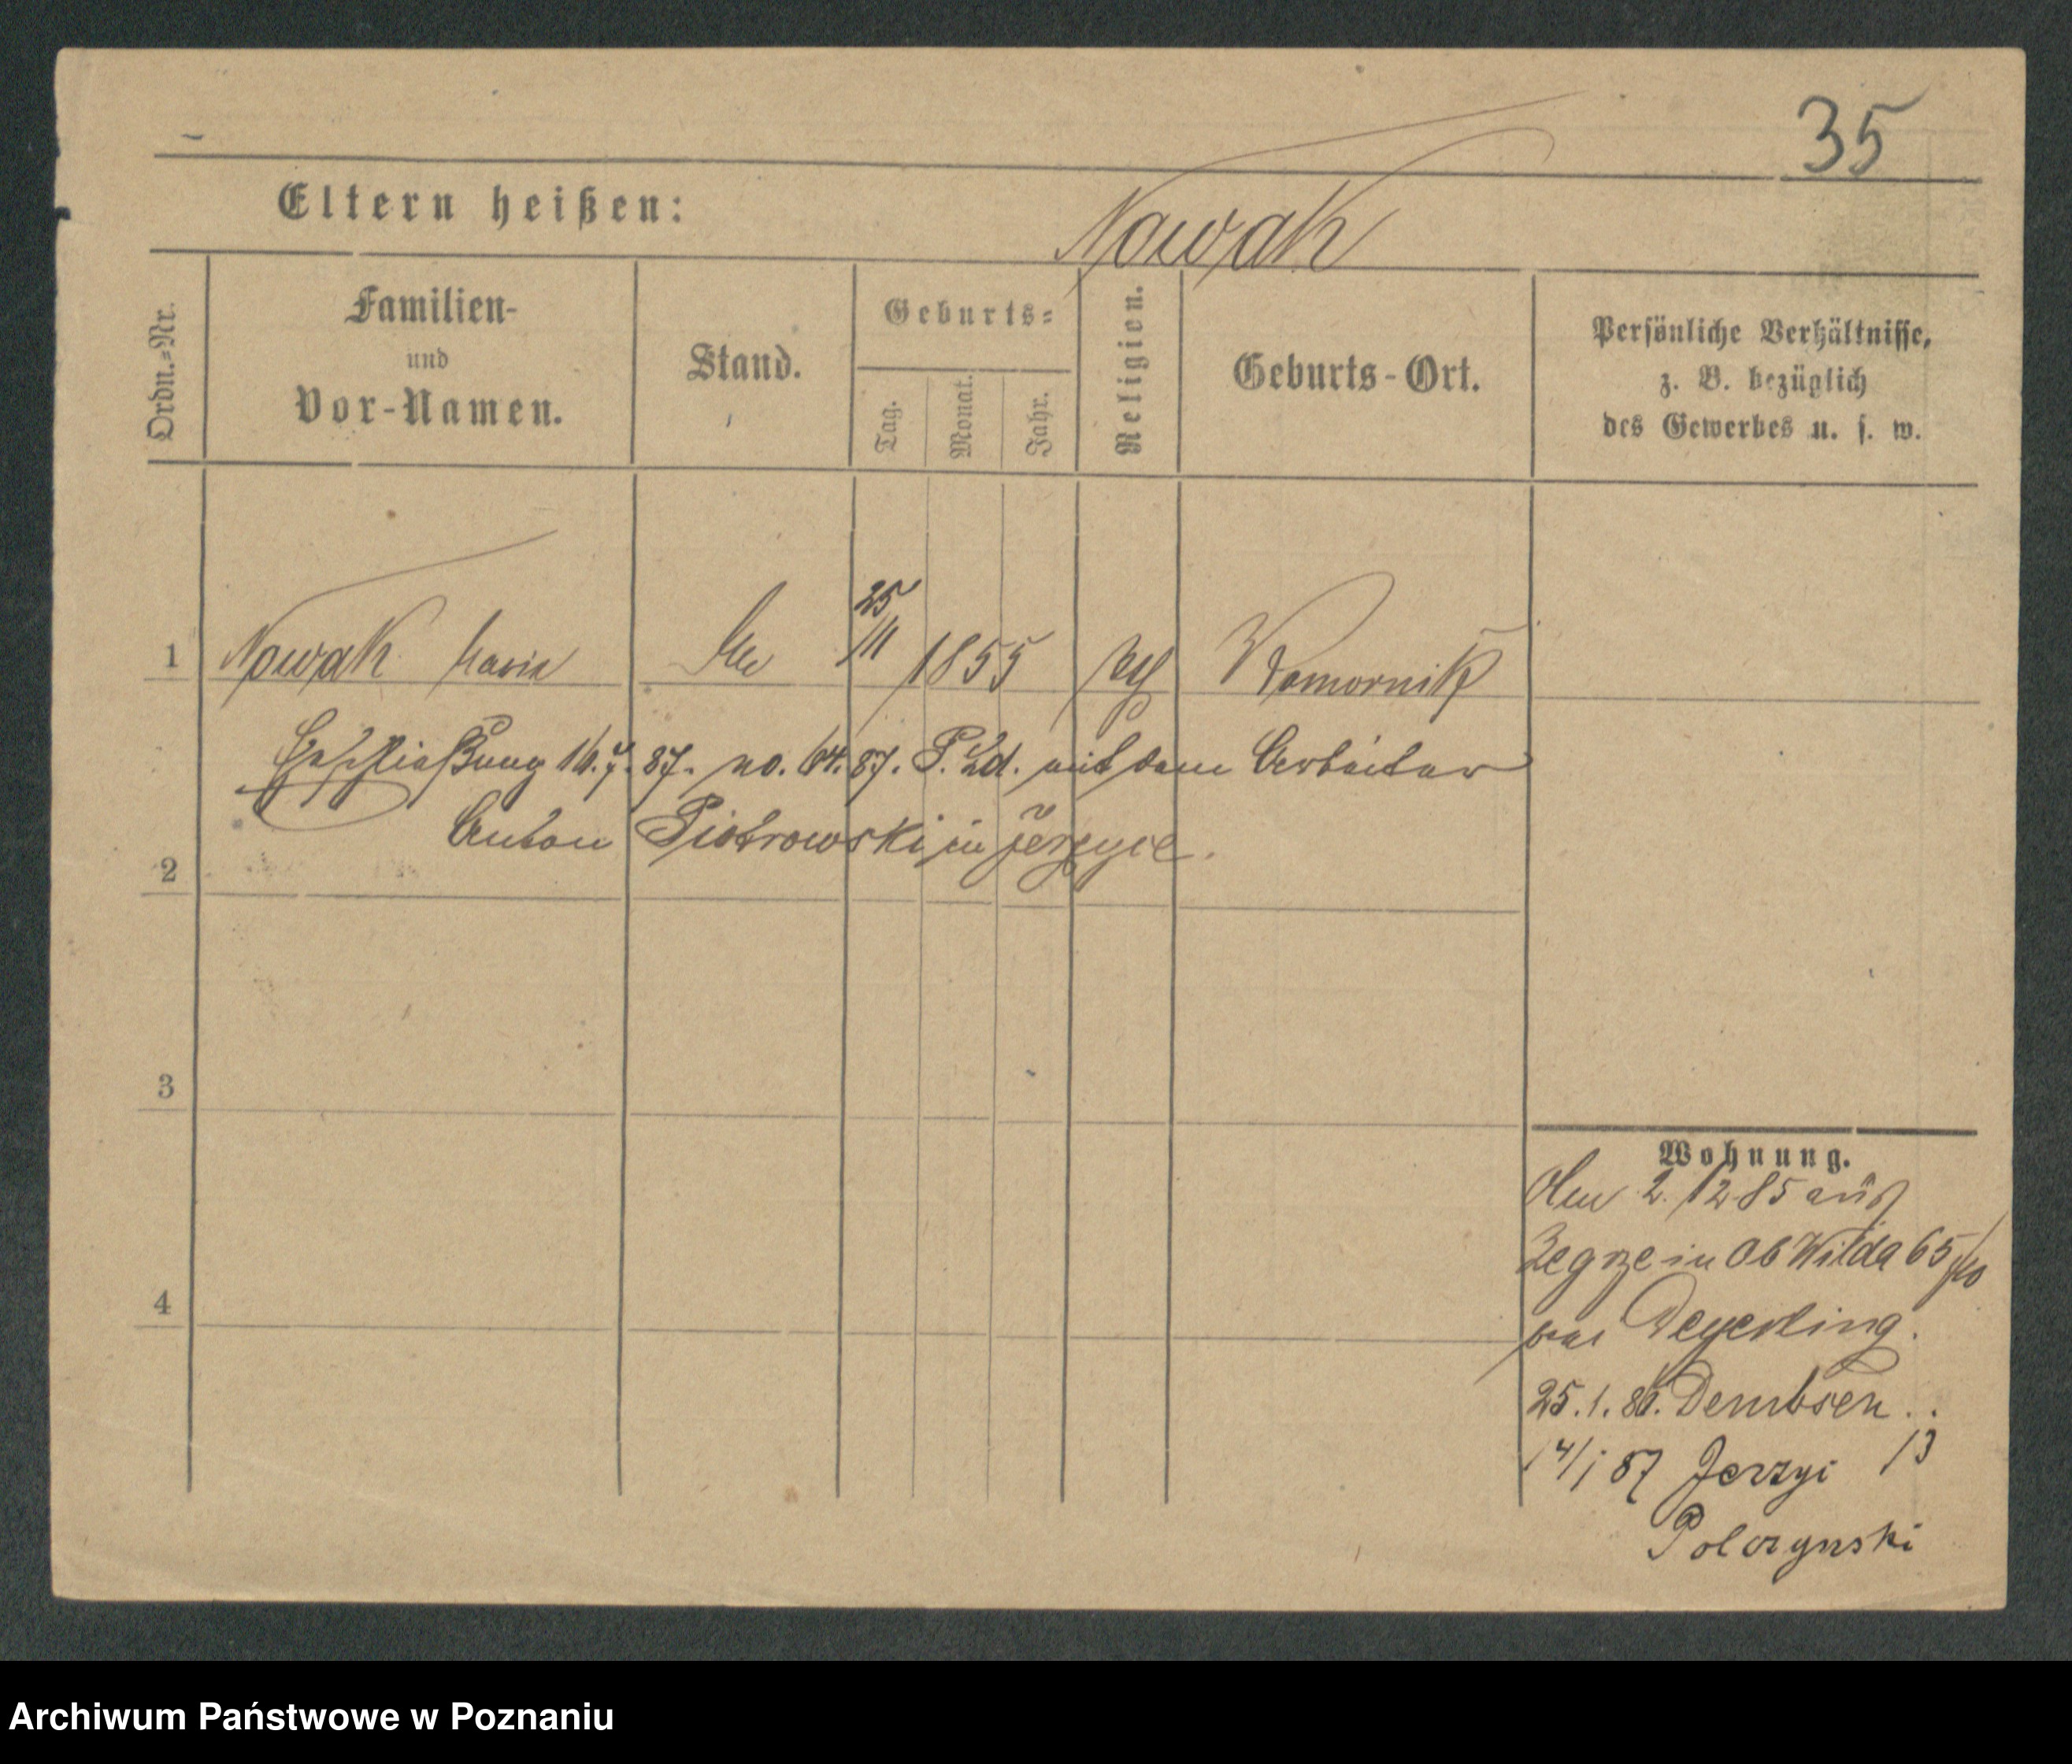 35
Eltern heißen: Nowak
Ordn.=Nr.
Familien-
und
Vor-Namen.
Stand.
Geburts=
Tag.
Monat.
Jahr.
Religion.
Geburts-Ort.
Persönliche Verhältnisse,
z. B. bezüglich
des Gewerbes u. s. w.
1 Nowak Maria 25/11 1855 Komornik
Eheschließung 16.7.87. no. 64.87. P. Ld. mit dem Arbeiter
Anton Piotrowski in Jerzyce.
2
3
4
Wohnung.
2. 12 85 aus
Zegrze in Ob Wilda 65
bei Deyerling.
25.1.86. Dembsen..
14/1 87 Jerzyi 13
Polczynski
Archiwum Państwowe w Poznaniu